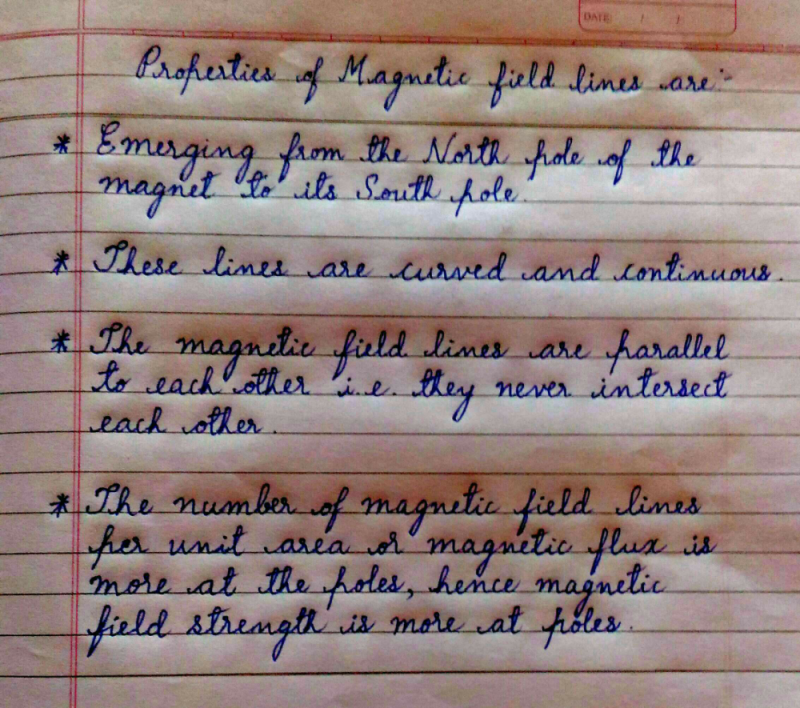 DATE: / /
Properties of Magnetic field lines are:-
* Emerging from the North pole of the
magnet to its South pole.
* These lines are curved and continuous.
* The magnetic field lines are parallel
to each other i.e. they never intersect
each other.
* The number of magnetic field lines
per unit area or magnetic flux is
more at the poles, hence magnetic
field strength is more at poles.